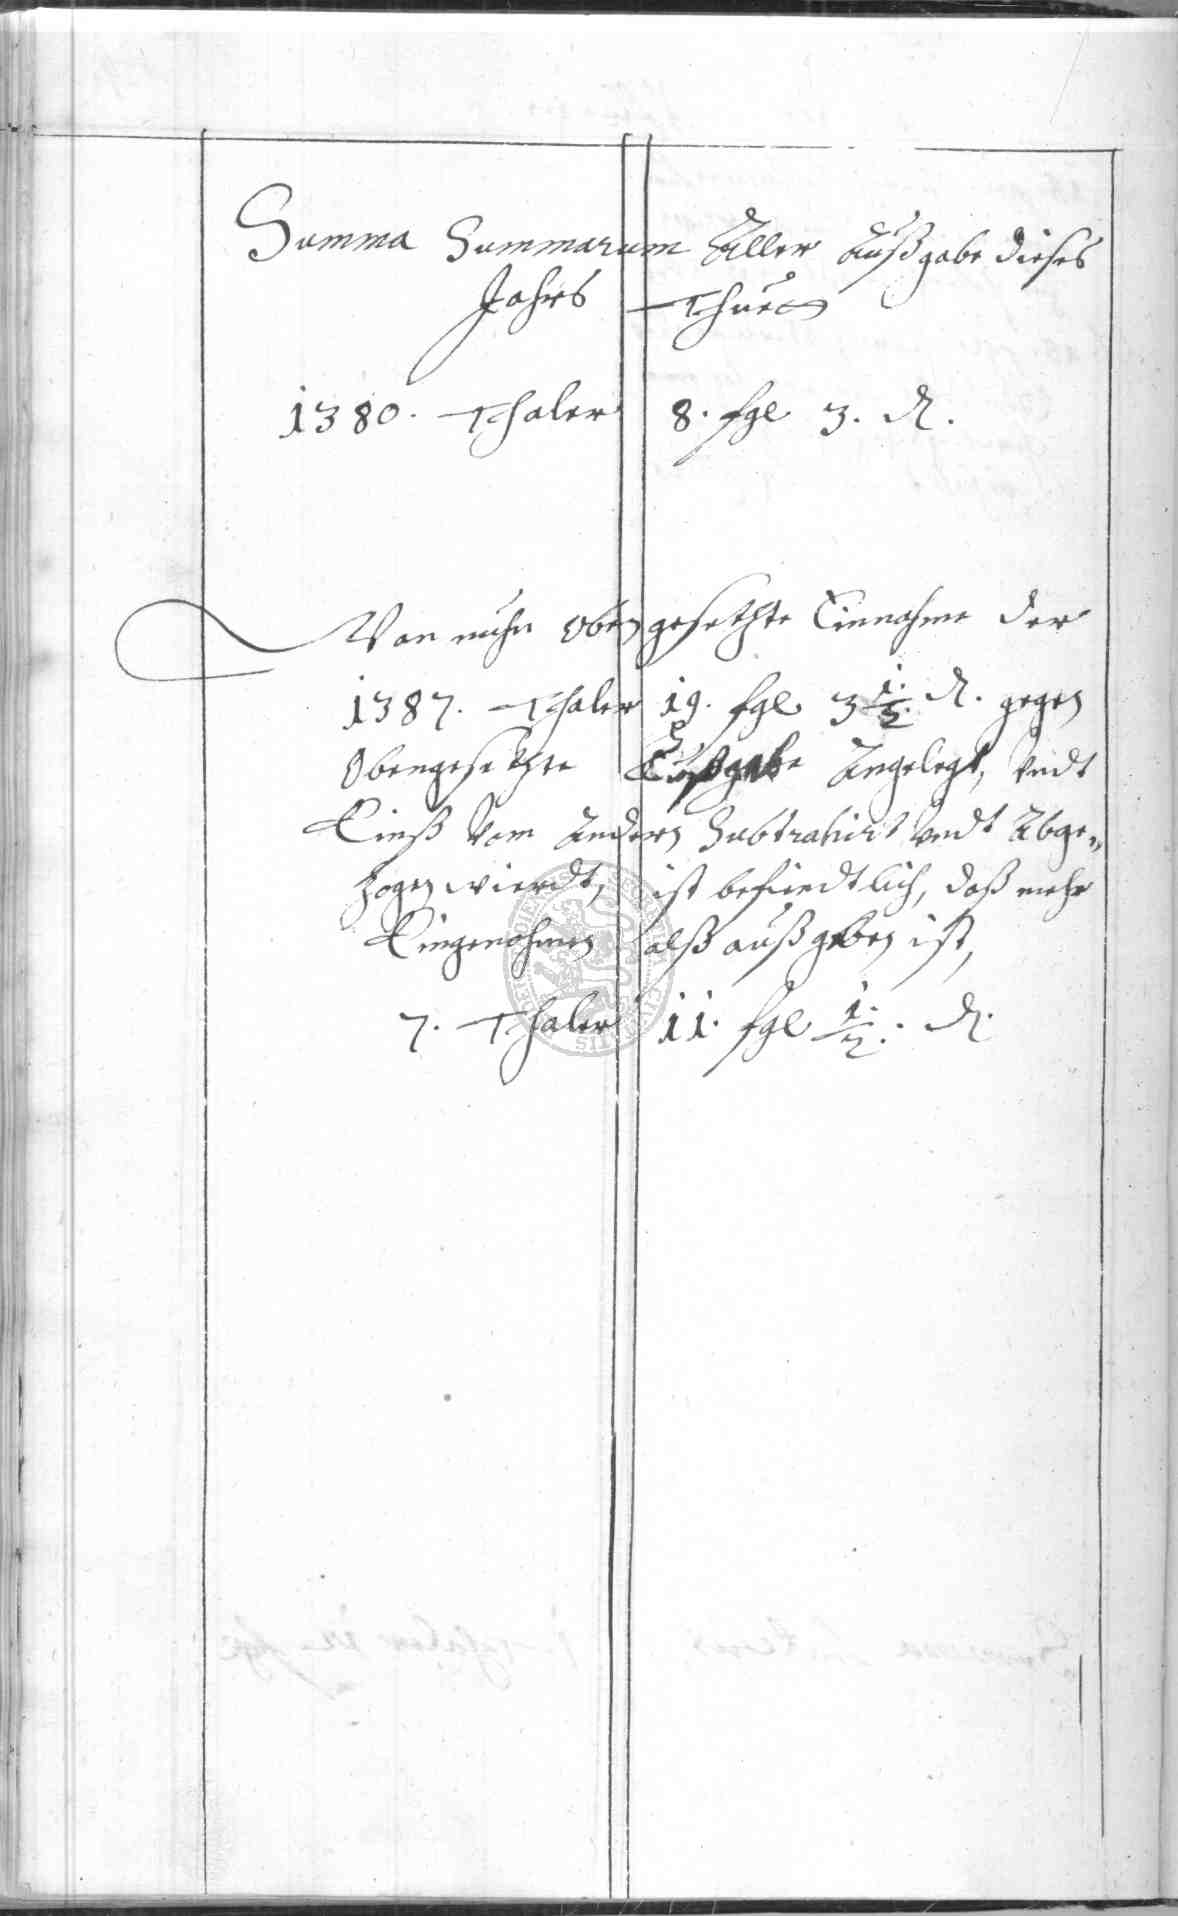 Summa Summarum Aller Außgabe dieses
Jahrs Thuet
1380. Thaler 8. sgl 3. ₰.
Wan nuhn Obengesetzte Einnahme der
1387. Thaler 19. sgl 3 1/2. ₰. gegen
Obengesetzte Außgabe Angelegt, Vndt
Einß Vom Andern Subtrahirt Vndt Abge„
zogen wierdt, ist befiendtlich, daß mehr
Eingenohmen alß außgeben ist,
7. Thaler 11. sgl 1/2. ₰.